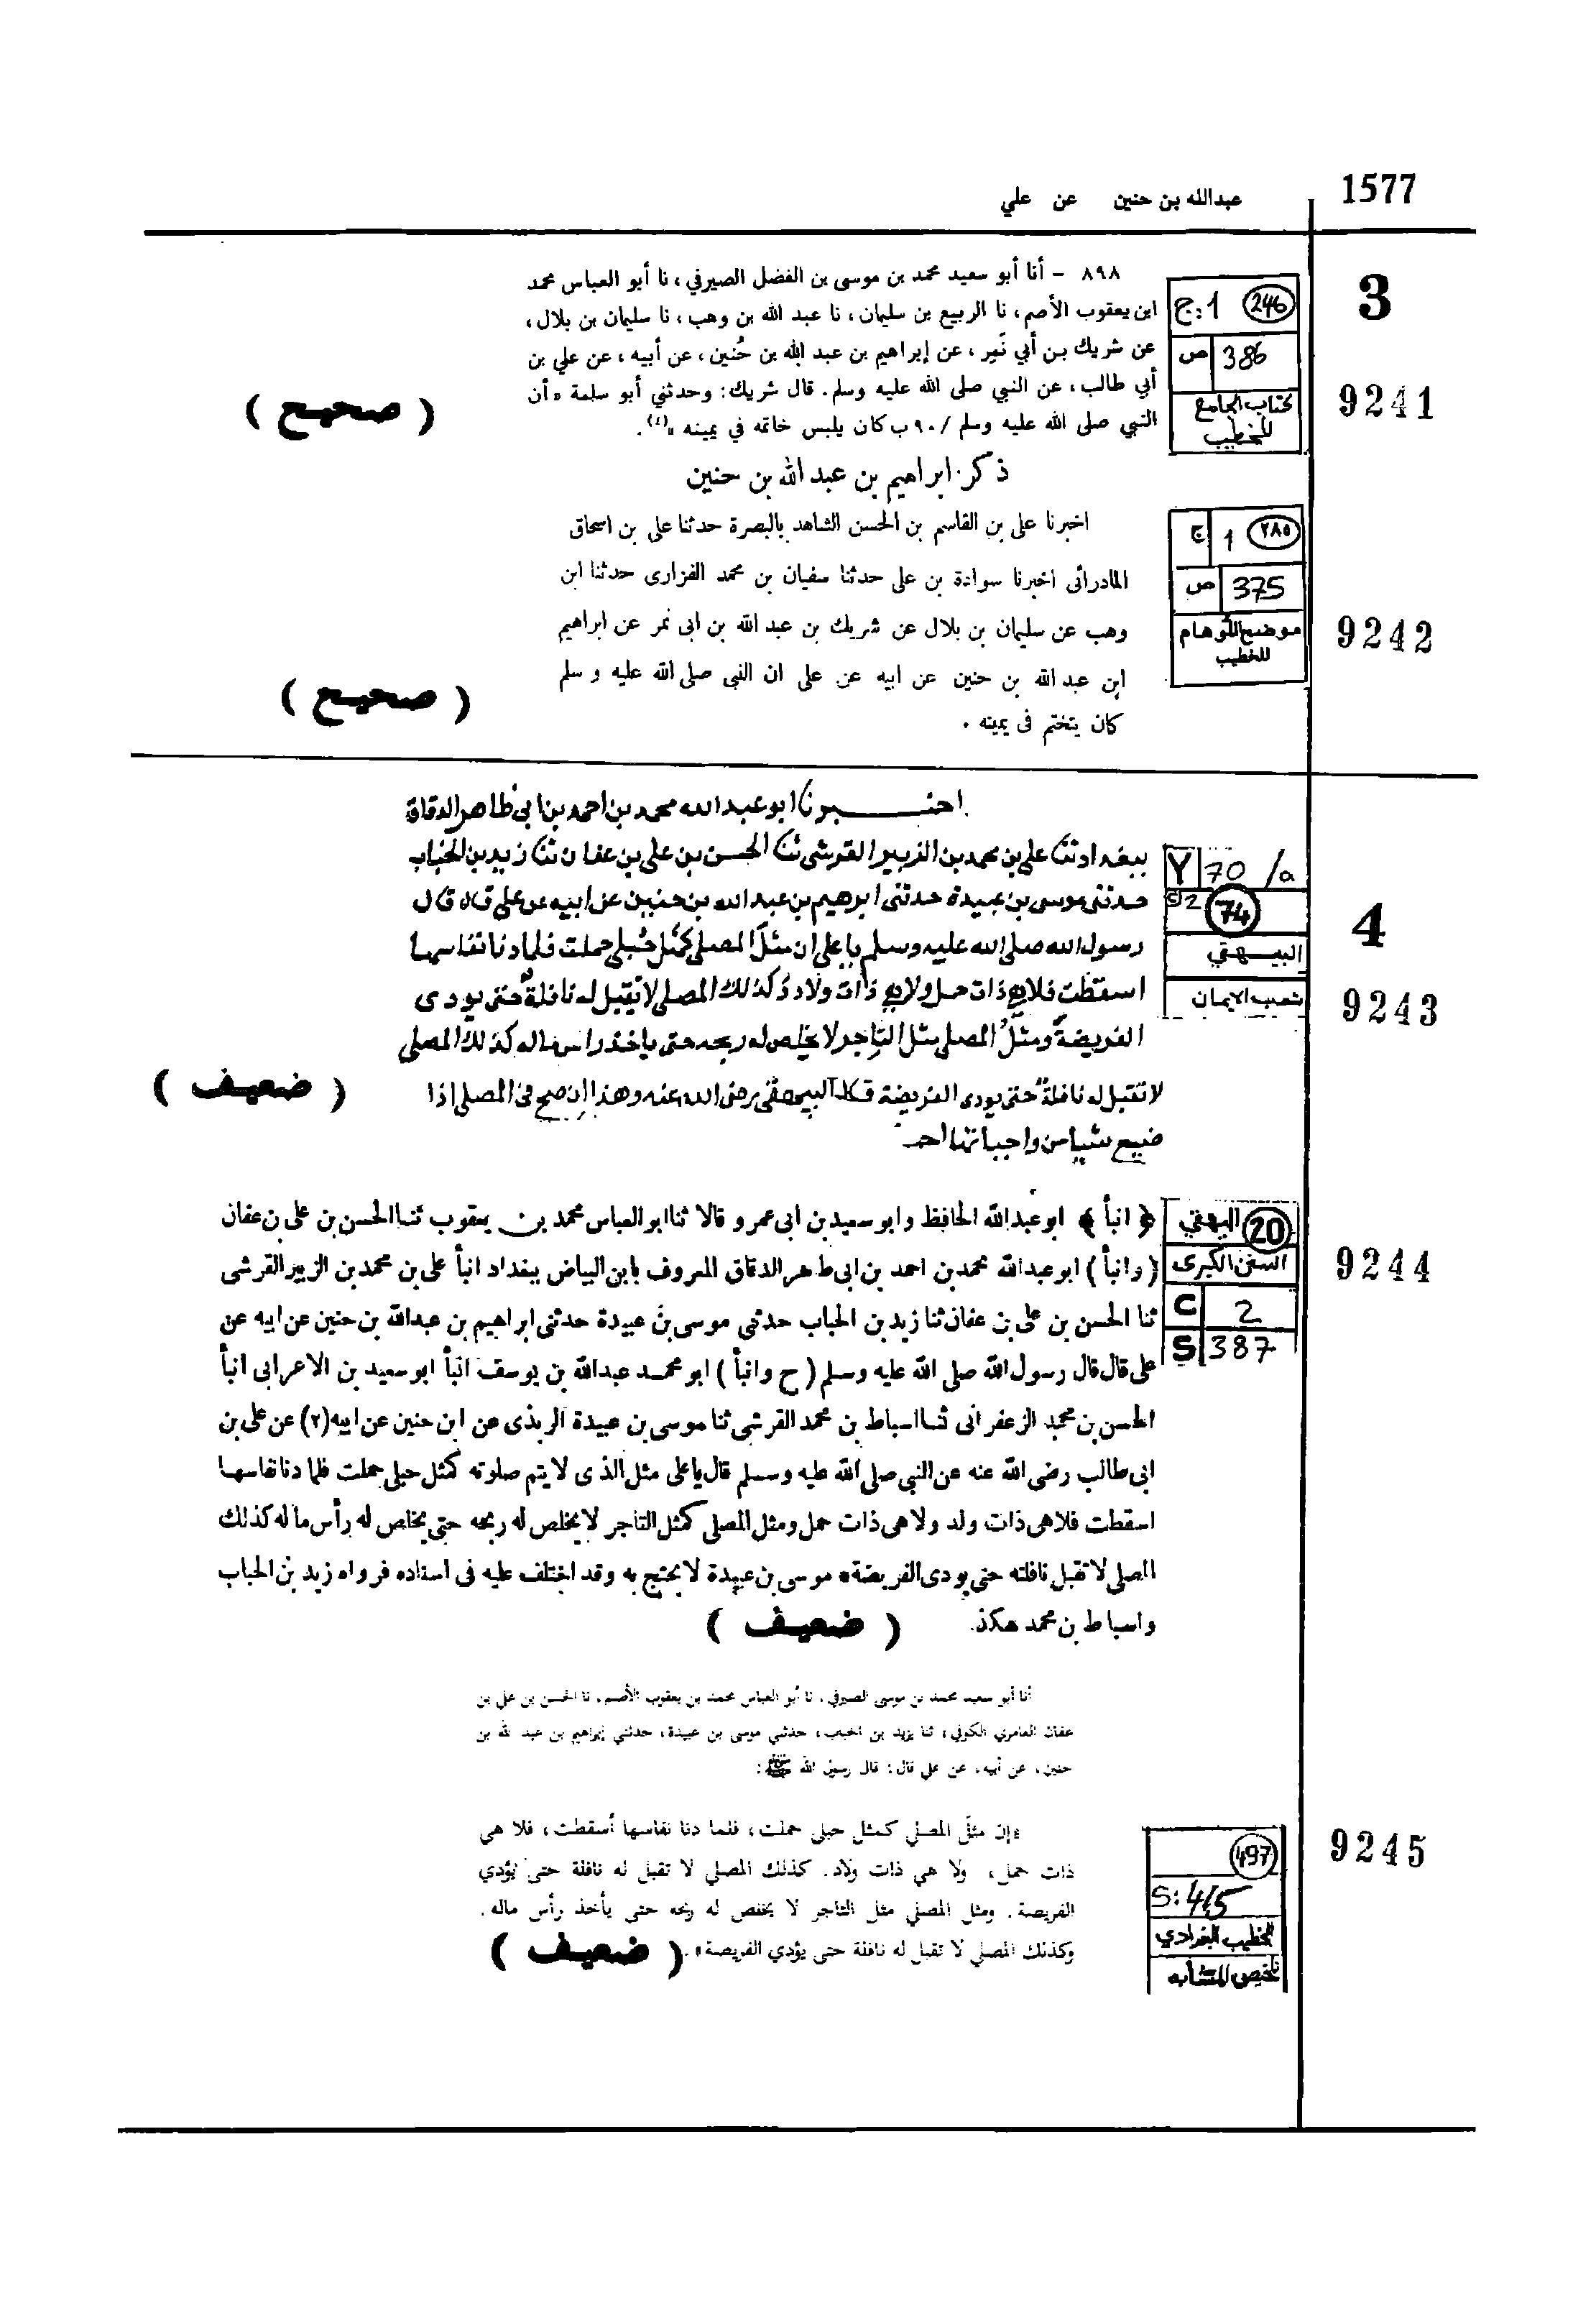 1577
عبدالله بن حنين عن علي
3
9241
ج: 1 246
ص 386
كتاب الجامع
للخطيب
٨٩٨ - أنا أبو سعيد محمد بن موسى بن الفضل الصيرفي، نا أبو العباس محمد
ابن يعقوب الأصم، نا الربيع بن سليمان، نا عبد الله بن وهب، نا سليمان بن بلال،
عن شريك بن أبي نَمِر، عن إبراهيم بن عبد الله بن حُنين، عن أبيه، عن علي بن
أبي طالب، عن النبي صلى الله عليه وسلم. قال شريك: وحدثني أبو سلمة «أن
النبي صلى الله عليه وسلم /٩٠ ب كان يلبس خاتمه في يمينه»(٤).
( صحيح )
ذكر ابراهيم بن عبد الله بن حنين
9242
ج 1 ٢٨٥
ص 375
موضح الأوهام
للخطيب
اخبرنا على بن القاسم بن الحسن الشاهد بالبصرة حدثنا على بن اسحاق
المادرائى اخبرنا سوادة بن على حدثنا سفيان بن محمد الفزارى حدثنا ابن
وهب عن سليمان بن بلال عن شريك بن عبد الله بن ابى نمر عن ابراهيم
ابن عبد الله بن حنين عن ابيه عن على ان النبى صلى الله عليه وسلم
كان يتختم فى يمينه .
( صحيح )
4
9243
Y 70 /a
74
البيهقي
شعب الايمان
اخبرنا ابو عبد الله محمد بن احمد بن ابى طاهر الدقاق
ببغداد ثنا على بن محمد بن الزبير القرشى ثنا الحسن بن على بن عفان ثنا زيد بن الحباب
حدثنى موسى بن عبيدة حدثنى ابرهيم بن عبد الله بن حنين عن ابيه عن على قال قال
رسول الله صلى الله عليه وسلم يا على ان مثل المصلى كمثل حبلى حملت فلما دنا نفاسها
اسقطت فلا هي ذات حمل ولا هي ذات ولاد كذلك المصلى لا تقبل له نافلة حتى يودى
الفريضة ومثل المصلى مثل التاجر لا يخلص له ربحه حتى ياخذ راس ماله كذلك المصلى
لا تقبل له نافلة حتى يودى الفريضة قال البيهقى رضى الله عنه وهذا ان صح فى المصلى اذا
ضيع شيا من واجباتها
( ضعيف )
9244
البيهقي 20
السنن الكبرى
C 2
S 387
﴿ انبأ ﴾ ابو عبدالله الحافظ وابو سعيد بن ابى عمرو قالا ثنا ابو العباس محمد بن يعقوب ثنا الحسن بن على بن عفان
( وانبأ ) ابو عبدالله محمد بن احمد بن ابى طاهر الدقاق المعروف بابن البياض ببغداد انبأ على بن محمد بن الزبير القرشى
ثنا الحسن بن على بن عفان ثنا زيد بن الحباب حدثنى موسى بن عبيدة حدثنى ابراهيم بن عبدالله بن حنين عن ابيه عن
على قال قال رسول الله صلى الله عليه وسلم ( ح وانبأ ) ابو محمد عبدالله بن يوسف انبأ ابو سعيد بن الاعرابى انبأ
الحسن بن محمد الزعفرانى ثنا اسباط بن محمد القرشى ثنا موسى بن عبيدة الربذى عن ابن حنين عن ابيه (٢) عن على بن
ابى طالب رضى الله عنه عن النبى صلى الله عليه وسلم قال يا على مثل الذى لا يتم صلوته كمثل حبلى حملت فلما دنا نفاسها
اسقطت فلا هى ذات ولد ولا هى ذات حمل ومثل المصلى كمثل التاجر لا يخلص له ربحه حتى يخلص له رأس ماله كذلك
المصلى لا تقبل نافلته حتى يودى الفريضة * موسى بن عبيدة لا يحتج به وقد اختلف عليه فى اسناده فرواه زيد بن الحباب
واسباط بن محمد هكذ
( ضعيف )
أنا أبو سعيد محمد بن موسى الصيرفي، نا أبو العباس محمد بن يعقوب الأصم، نا الحسن بن علي بن
عفان العامري الكوفي، ثنا يزيد بن الحباب، حدثني موسى بن عبيدة، حدثني إبراهيم بن عبد الله بن
حنين، عن أبيه، عن علي قال: قال رسول الله ﷺ:
9245
497
S: 415
الخطيب البغدادي
تلخيص المتشابه
«إن مثل المصلي كمثل حبلى حملت، فلما دنا نفاسها أسقطت، فلا هي
ذات حمل، ولا هي ذات ولاد. كذلك المصلي لا تقبل له نافلة حتى يؤدي
الفريضة. ومثل المصلي مثل التاجر لا يخلص له ربحه حتى يأخذ رأس ماله.
وكذلك المصلي لا تقبل له نافلة حتى يؤدي الفريضة».
( ضعيف )